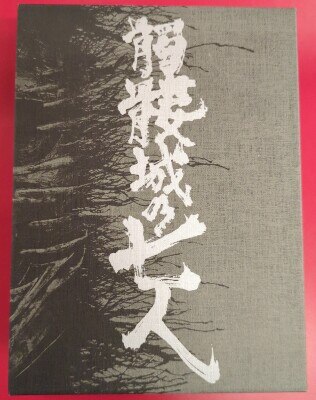 髑髏城の七人